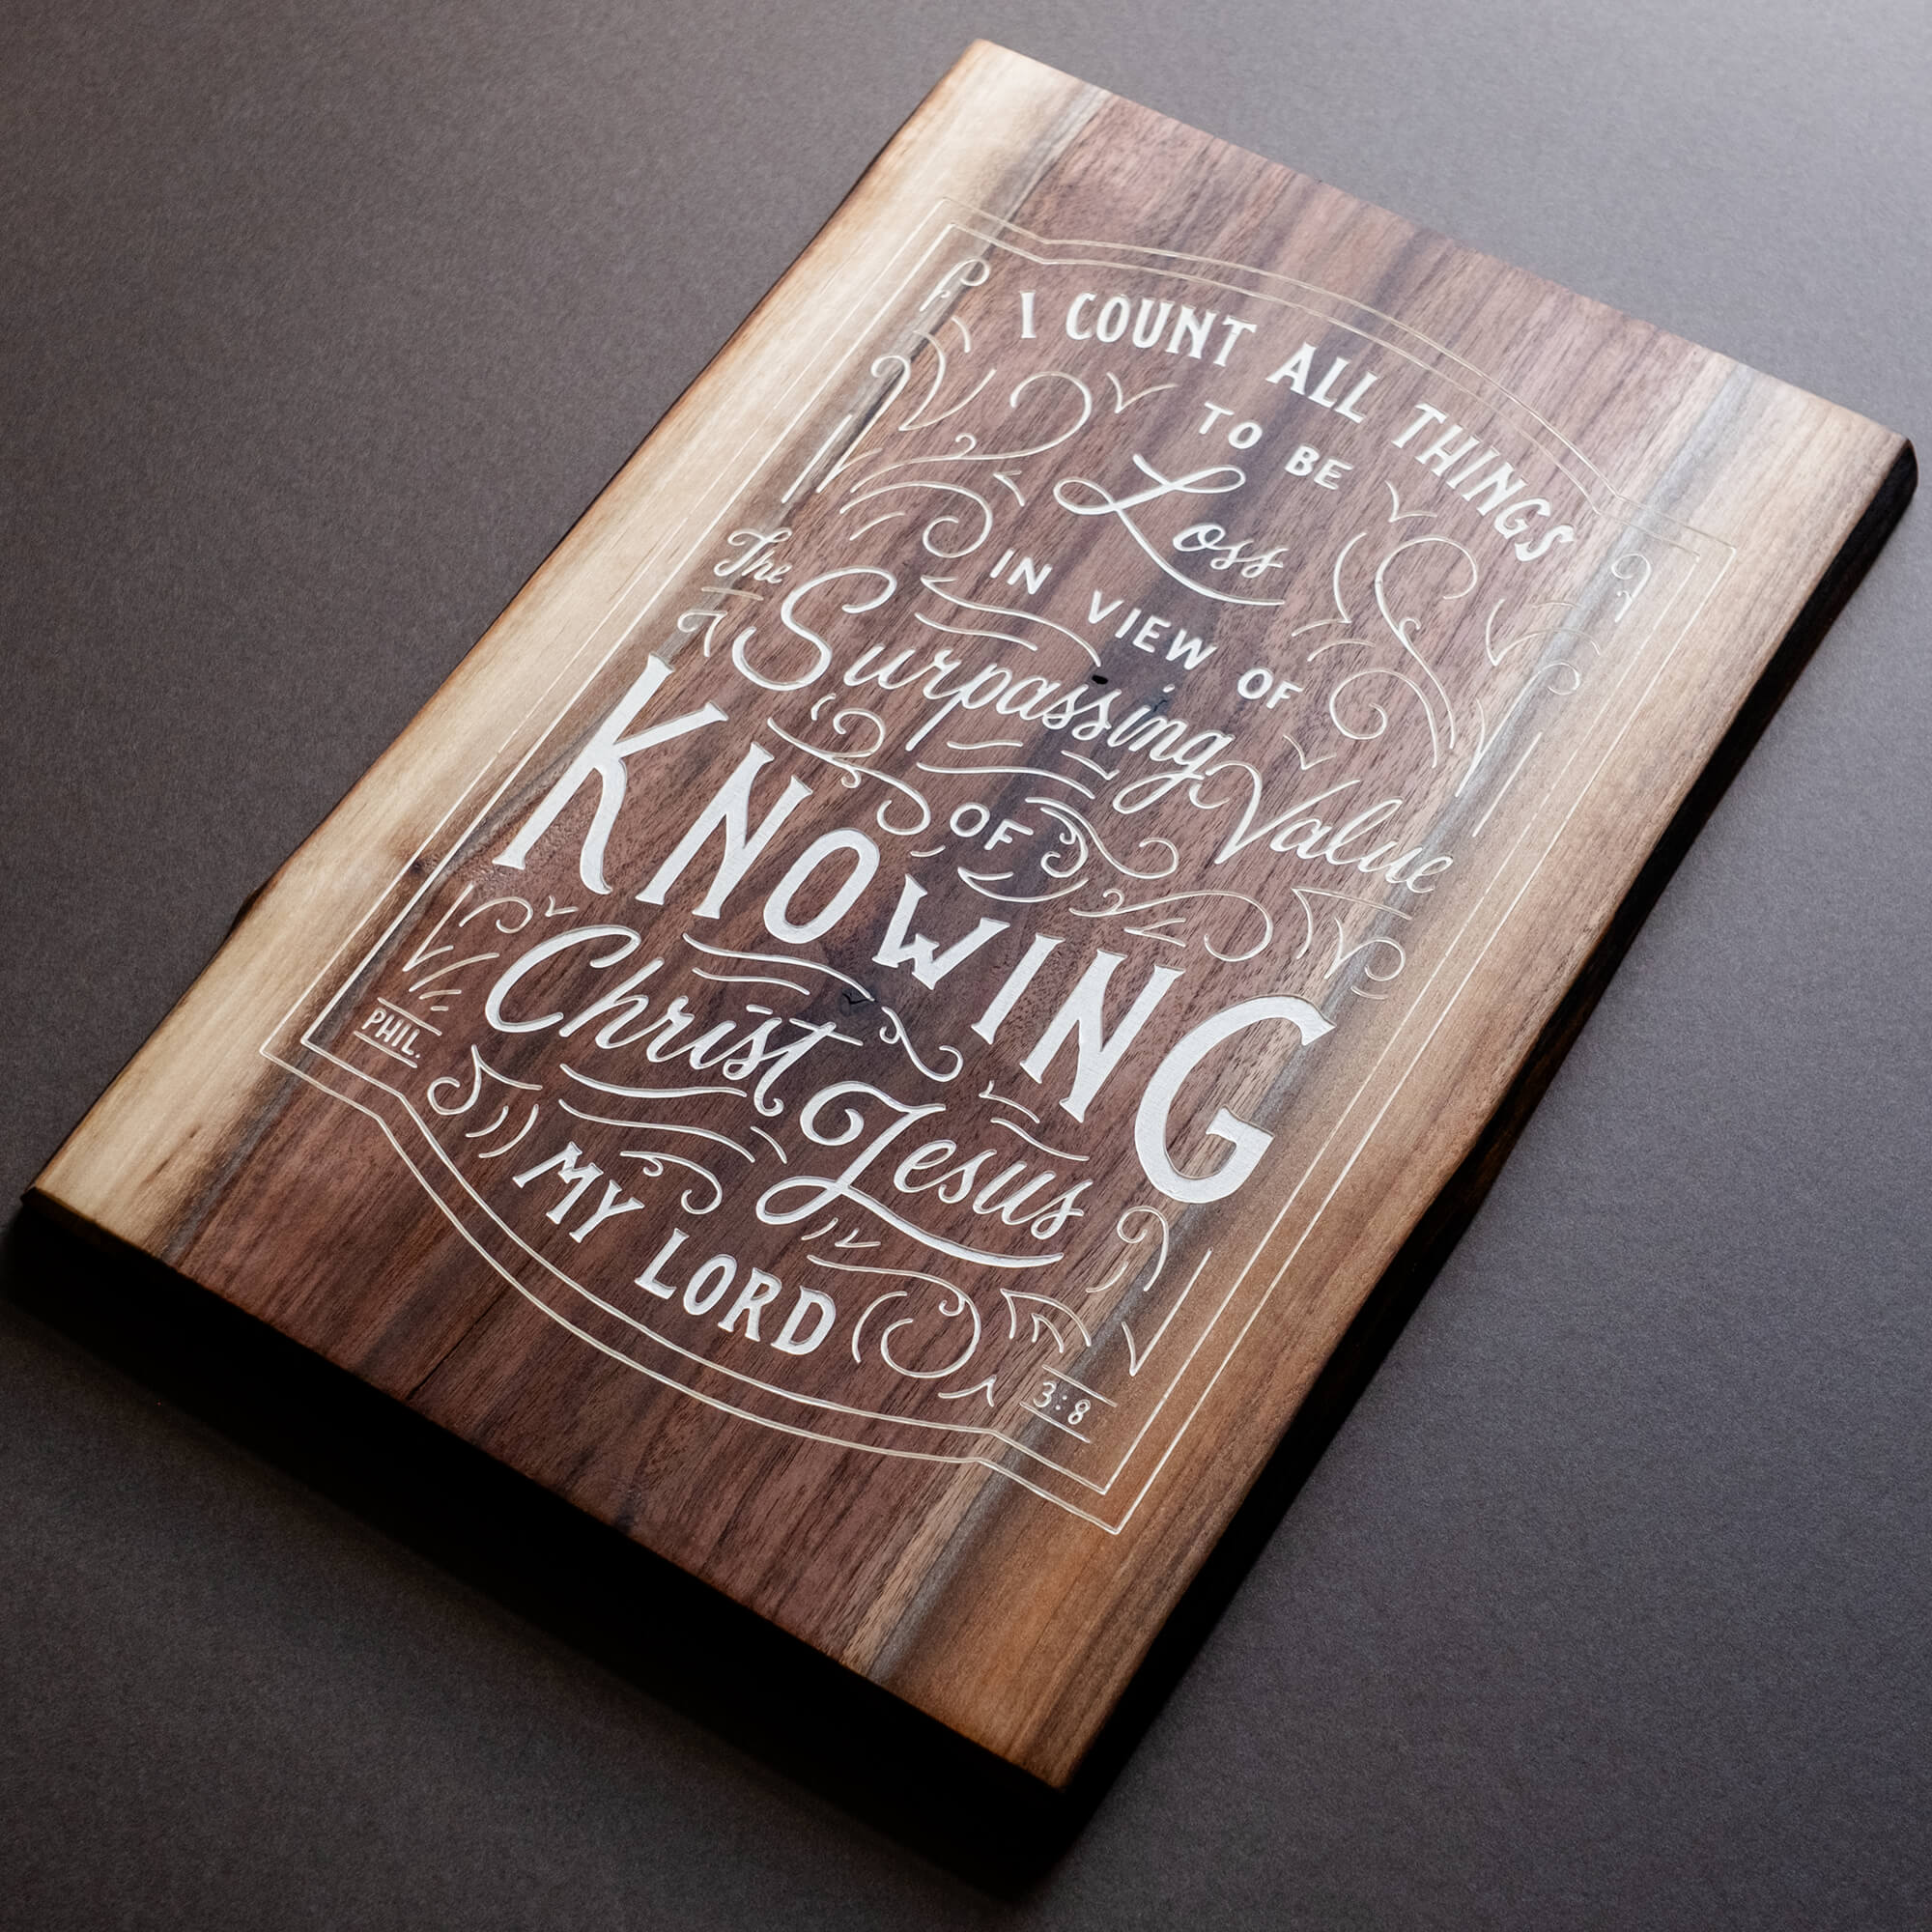 I COUNT ALL THINGS
TO BE
Loss
IN VIEW OF
The Surpassing Value
OF
KNOWING
Christ Jesus
MY LORD
PHIL. 3:8